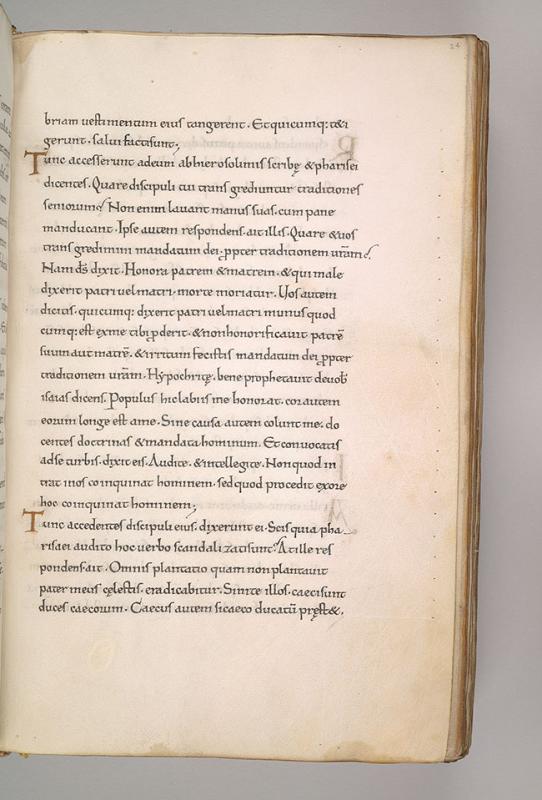 24
briam uestimentum eius tangerent. Et quicumq: tæti
gerunt. salui facti sunt;
Tunc accesserunt ad eum ab hierosolimis scribę & pharisei
dicentes. Quare discipuli tui transgrediuntur traditiones
seniorum; Non enim lauant manus suas. cum pane
manducant. Ipse autem respondens. ait illis. Quare & uos
transgredimini mandatum dei. ꝓpter traditionem uram̄;
Nam ds̄ dixit. Honora patrem & matrem. & qui male
dixerit patri uel matri. morte moriatur. Uos autem
dicitis. quicumq: dixerit patri uel matri munus quod
cumq: est ex me tibi ꝓderit. & non honorificauit patrē
suum aut matrē. & irritum fecistis mandatum dei ꝓpter
traditionem urām. Hypochritę. bene prophetauit de uob'
isaias dicens. Populus hic labiis me honorat. cor autem
eorum longe est a me. Sine causa autem colunt me. do
centes doctrinas & mandata hominum. Et conuocatis
ad se turbis. dixit eis. Audite. & intellegite. Non quod in
trat in os coinquinat hominem. sed quod procedit ex ore
hoc coinquinat hominem;
Tunc accedentes discipuli eius. dixerunt ei. Scis quia pha
risaei audito hoc uerbo scandalizati sunt; At ille res
pondens. ait. Omnis plantatio quam non plantauit
pater meus cęlestis. eradicabitur. Sinite illos. caeci sunt
duces caecorum. Caecus autem si caeco ducatū pręst&.